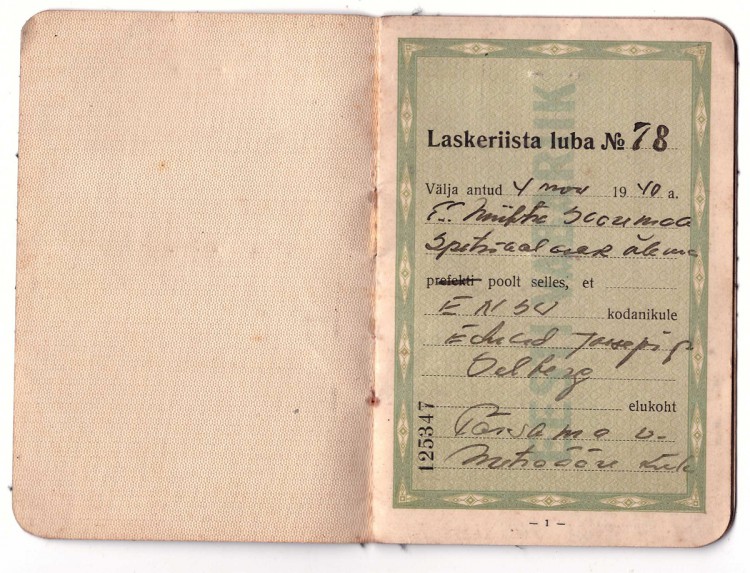 Laskeriista luba № 78
Välja antud 4 nov 1940 a.
Saaremaa
ülema
prefekti poolt selles, et
ENSV kodanikule
Eduard
Selberg
elukoht
Pärsama v.
Metsaääre
125347
EESTI VABARIIK
— 1 —